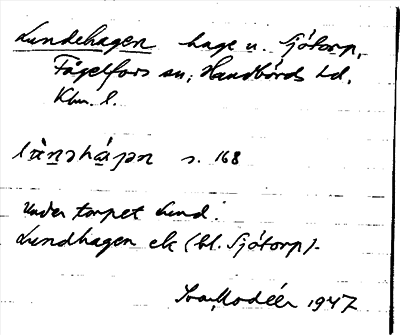 Lundehagen hage u. Sjötorp,
Fågelfors sn, Handbörds hd,
Klm. l.
s. 168
Under torpet Lund.
Lundhagen ek (bl. Sjötorp).
Ivar Modéer 1947